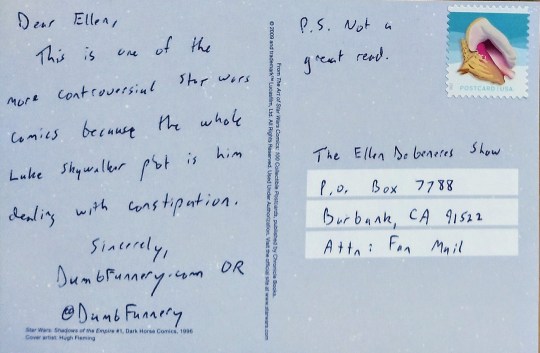 Dear Ellen,
This is one of the
more controversial Star Wars
comics because the whole
Luke Skywalker plot is him
dealing with constipation.
Sincerely,
DumbFunnery.com OR
@DumbFunnery
Star Wars: Shadows of the Empire #1, Dark Horse Comics, 1996
Cover artist: Hugh Fleming
From The Art of Star Wars Comics: 100 Collectible Postcards, published by Chronicle Books.
© 2009 and trademark™ Lucasfilm, Ltd. All Rights Reserved. Used Under Authorization. Visit the official site at www.starwars.com
P.S. Not a
great read.
POSTCARD | USA
The Ellen DeGeneres Show
P.O. Box 7788
Burbank, CA 91522
Attn: Fan Mail